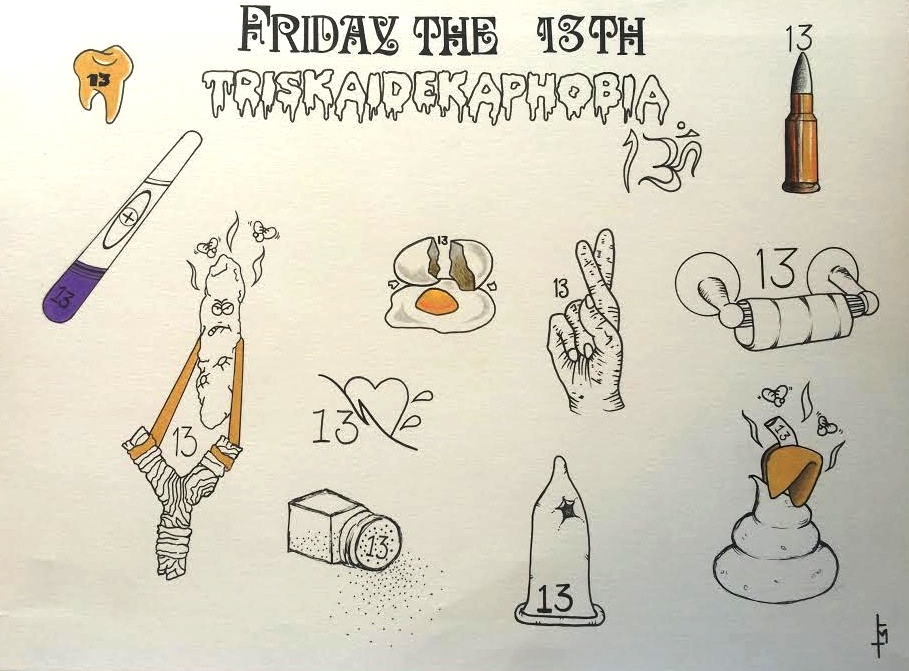 FRIDAY THE 13TH
TRISKAIDEKAPHOBIA
13
13
13
13
13
13
13
13
13
13
13
13
13